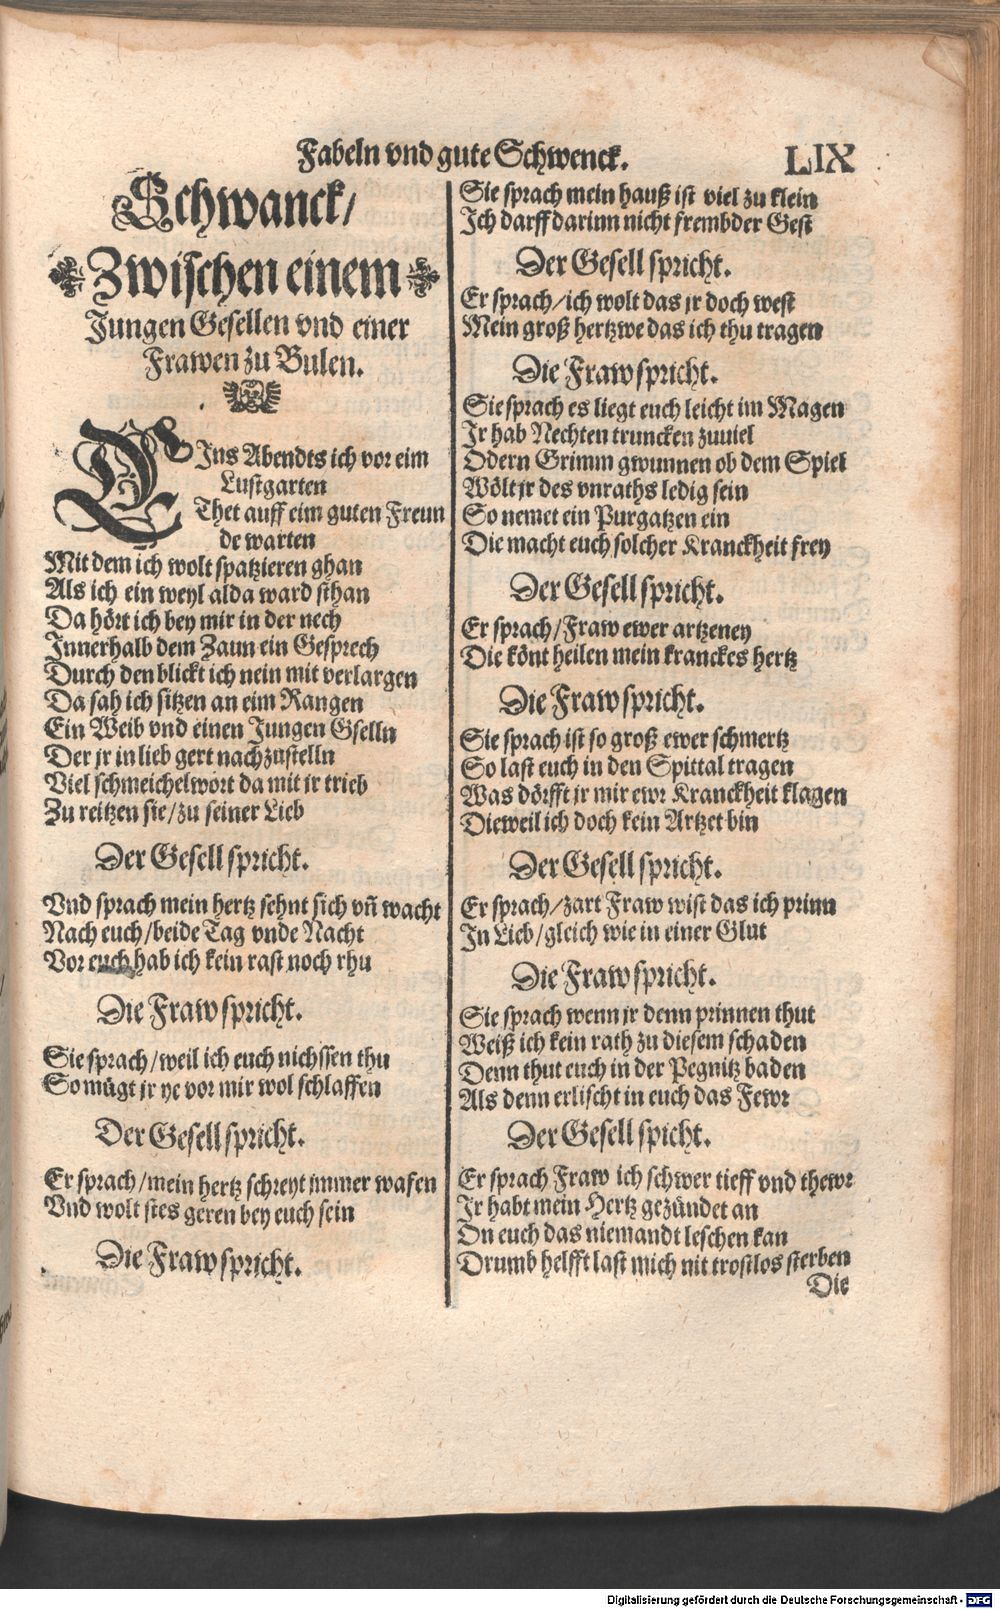 Fabeln vnd gute Schwenck. LIX
Schwanck/
Zwischen einem
Jungen Gesellen vnd einer
Frawen zu Bulen.
EIns Abendts ich vor eim
Lustgarten
Thet auff eim guten Freun
de warten
Mit dem ich wolt spatzieren ghan
Als ich ein weyl alda ward sthan
Da hört ich bey mir in der nech
Innerhalb dem Zaun ein Gesprech
Durch den blickt ich nein mit verlargen
Da sah ich sitzen an eim Rangen
Ein Weib vnd einen Jungen Gselln
Der jr in lieb gert nachzustelln
Viel schmeichelwort da mit jr trieb
Zu reitzen sie/zu seiner Lieb
Der Gesell spricht.
Vnd sprach mein hertz sehnt sich vñ wacht
Nach euch/beide Tag vnde Nacht
Vor euch hab ich kein rast noch rhu
Die Fraw spricht.
Sie sprach/weil ich euch nichssen thu
So mügt jr ye vor mir wol schlaffen
Der Gesell spricht.
Er sprach/mein hertz schreyt immer wafen
Vnd wolt stes geren bey euch sein
Die Fraw spricht.
Sie sprach mein hauß ist viel zu klein
Ich darff darinn nicht frembder Gest
Der Gesell spricht.
Er sprach/ich wolt das jr doch west
Mein groß hertzwe das ich thu tragen
Die Fraw spricht.
Sie sprach es liegt euch leicht im Magen
Jr hab Nechten truncken zuuiel
Odern Grimm gwunnen ob dem Spiel
Wölt jr des vnraths ledig sein
So nemet ein Purgatzen ein
Die macht euch solcher Kranckheit frey
Der Gesell spricht.
Er sprach/Fraw ewer artzeney
Die könt heilen mein kranckes hertz
Die Fraw spricht.
Sie sprach ist so groß ewer schmertz
So last euch in den Spittal tragen
Was dörfft jr mir ewr Kranckheit klagen
Dieweil ich doch kein Artzet bin
Der Gesell spricht.
Er sprach/zart Fraw wist das ich prinn
In Lieb/gleich wie in einer Glut
Die Fraw spricht.
Sie sprach wenn jr denn prinnen thut
Weiß ich kein rath zu diesem schaden
Denn thut euch in der Pegnitz baden
Als denn erlischt in euch das Fewr
Der Gesell spicht.
Er sprach Fraw ich schwer tieff vnd thewr
Jr habt mein Hertz gezündet an
On euch das niemandt leschen kan
Drumb helfft last mich nit trostlos sterben
Die
Digitalisierung gefördert durch die Deutsche Forschungsgemeinschaft - DFG